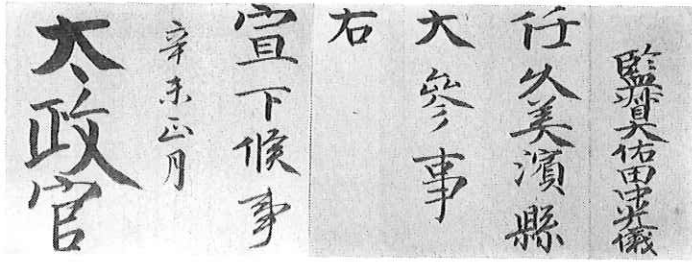 監督大佑田中光儀
任久美濱縣
大參事
右
宣下候事
辛未正月
太政官